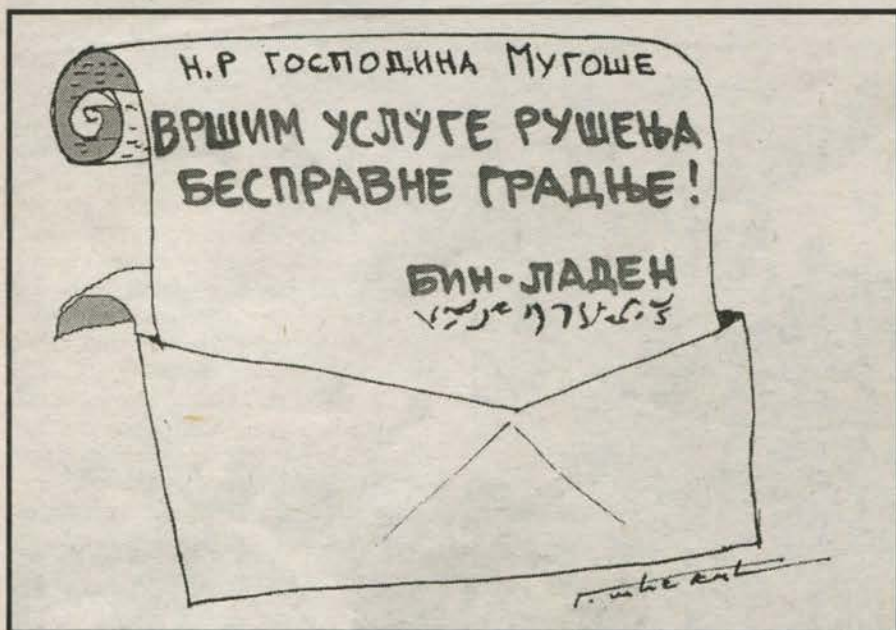 Н.Р ГОСПОДИНА МУГОШЕ
ВРШИМ УСЛУГЕ РУШЕЊА
БЕСПРАВНЕ ГРАДЊЕ!
БИН-ЛАДЕН